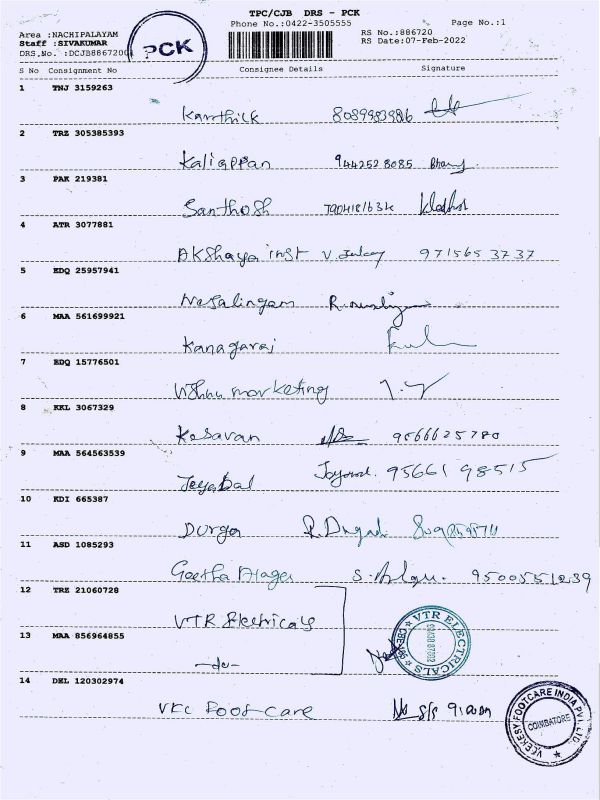 TPC/CJB DRS - PCK
Phone No.:0422-3505555
Page No.:1
Area :NACHIPALAYAM
Staff :SIVAKUMAR
DRS.No. :DCJB886720
PCK
RS No.:886720
RS Date:07-Feb-2022
S No Consignment No Consignee Details Signature
1 TNJ 3159263
Karthick
2 TRZ 305385393
Kaliappan 9442528085
3 PAK 219381
Santhosh
4 ATR 3077881
Akshaya inst 9715653737
5 EDQ 25957941
Nagalingam
6 MAA 561699921
Kanagaraj
7 EDQ 15776501
marketing
8 KKL 3067329
Kesavan 9566625780
9 MAA 564563539
Jeyabal 9566198515
10 KDI 665387
Durga
11 ASD 1085293
Geetha 9500551239
12 TRZ 21060728
VTR Electricals
13 MAA 856964855
-do-
VTR ELECTRICALS
14 DEL 120302974
VKC Foot-care
VEEKESY FOOTCARE INDIA PVT. LTD.
COIMBATORE